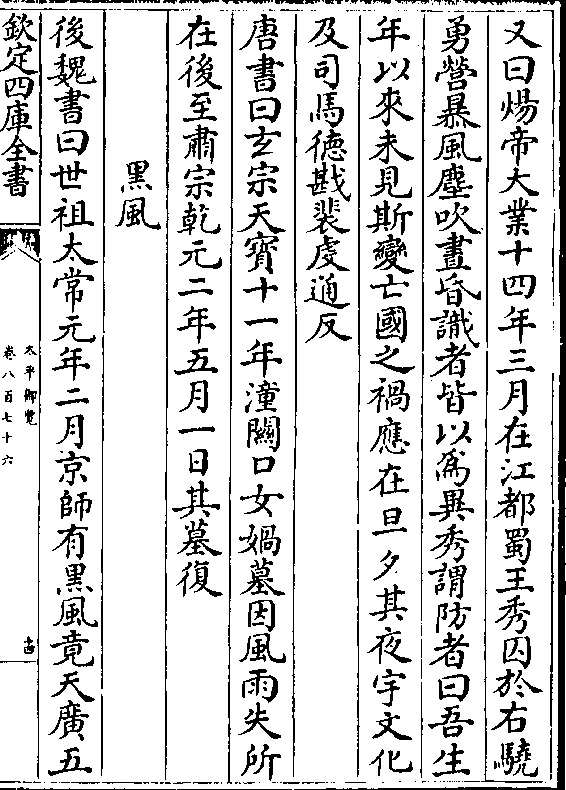 又曰煬帝大業十四年三月在江都蜀王秀囚於右驍
勇營暴風塵吹晝昏識者皆以為異秀謂防者曰吾生
年以來未見斯變亡國之禍應在旦夕其夜宇文化
及司馬德戡裴虔通反
唐書曰玄宗天寶十一年潼關口女媧墓因風雨失所
在後至肅宗乾元二年五月一日其墓復
黑風
後魏書曰世祖太常元年二月京師有黑風竟天廣五
欽定四庫全書
太平御覽
卷八百七十六
十四